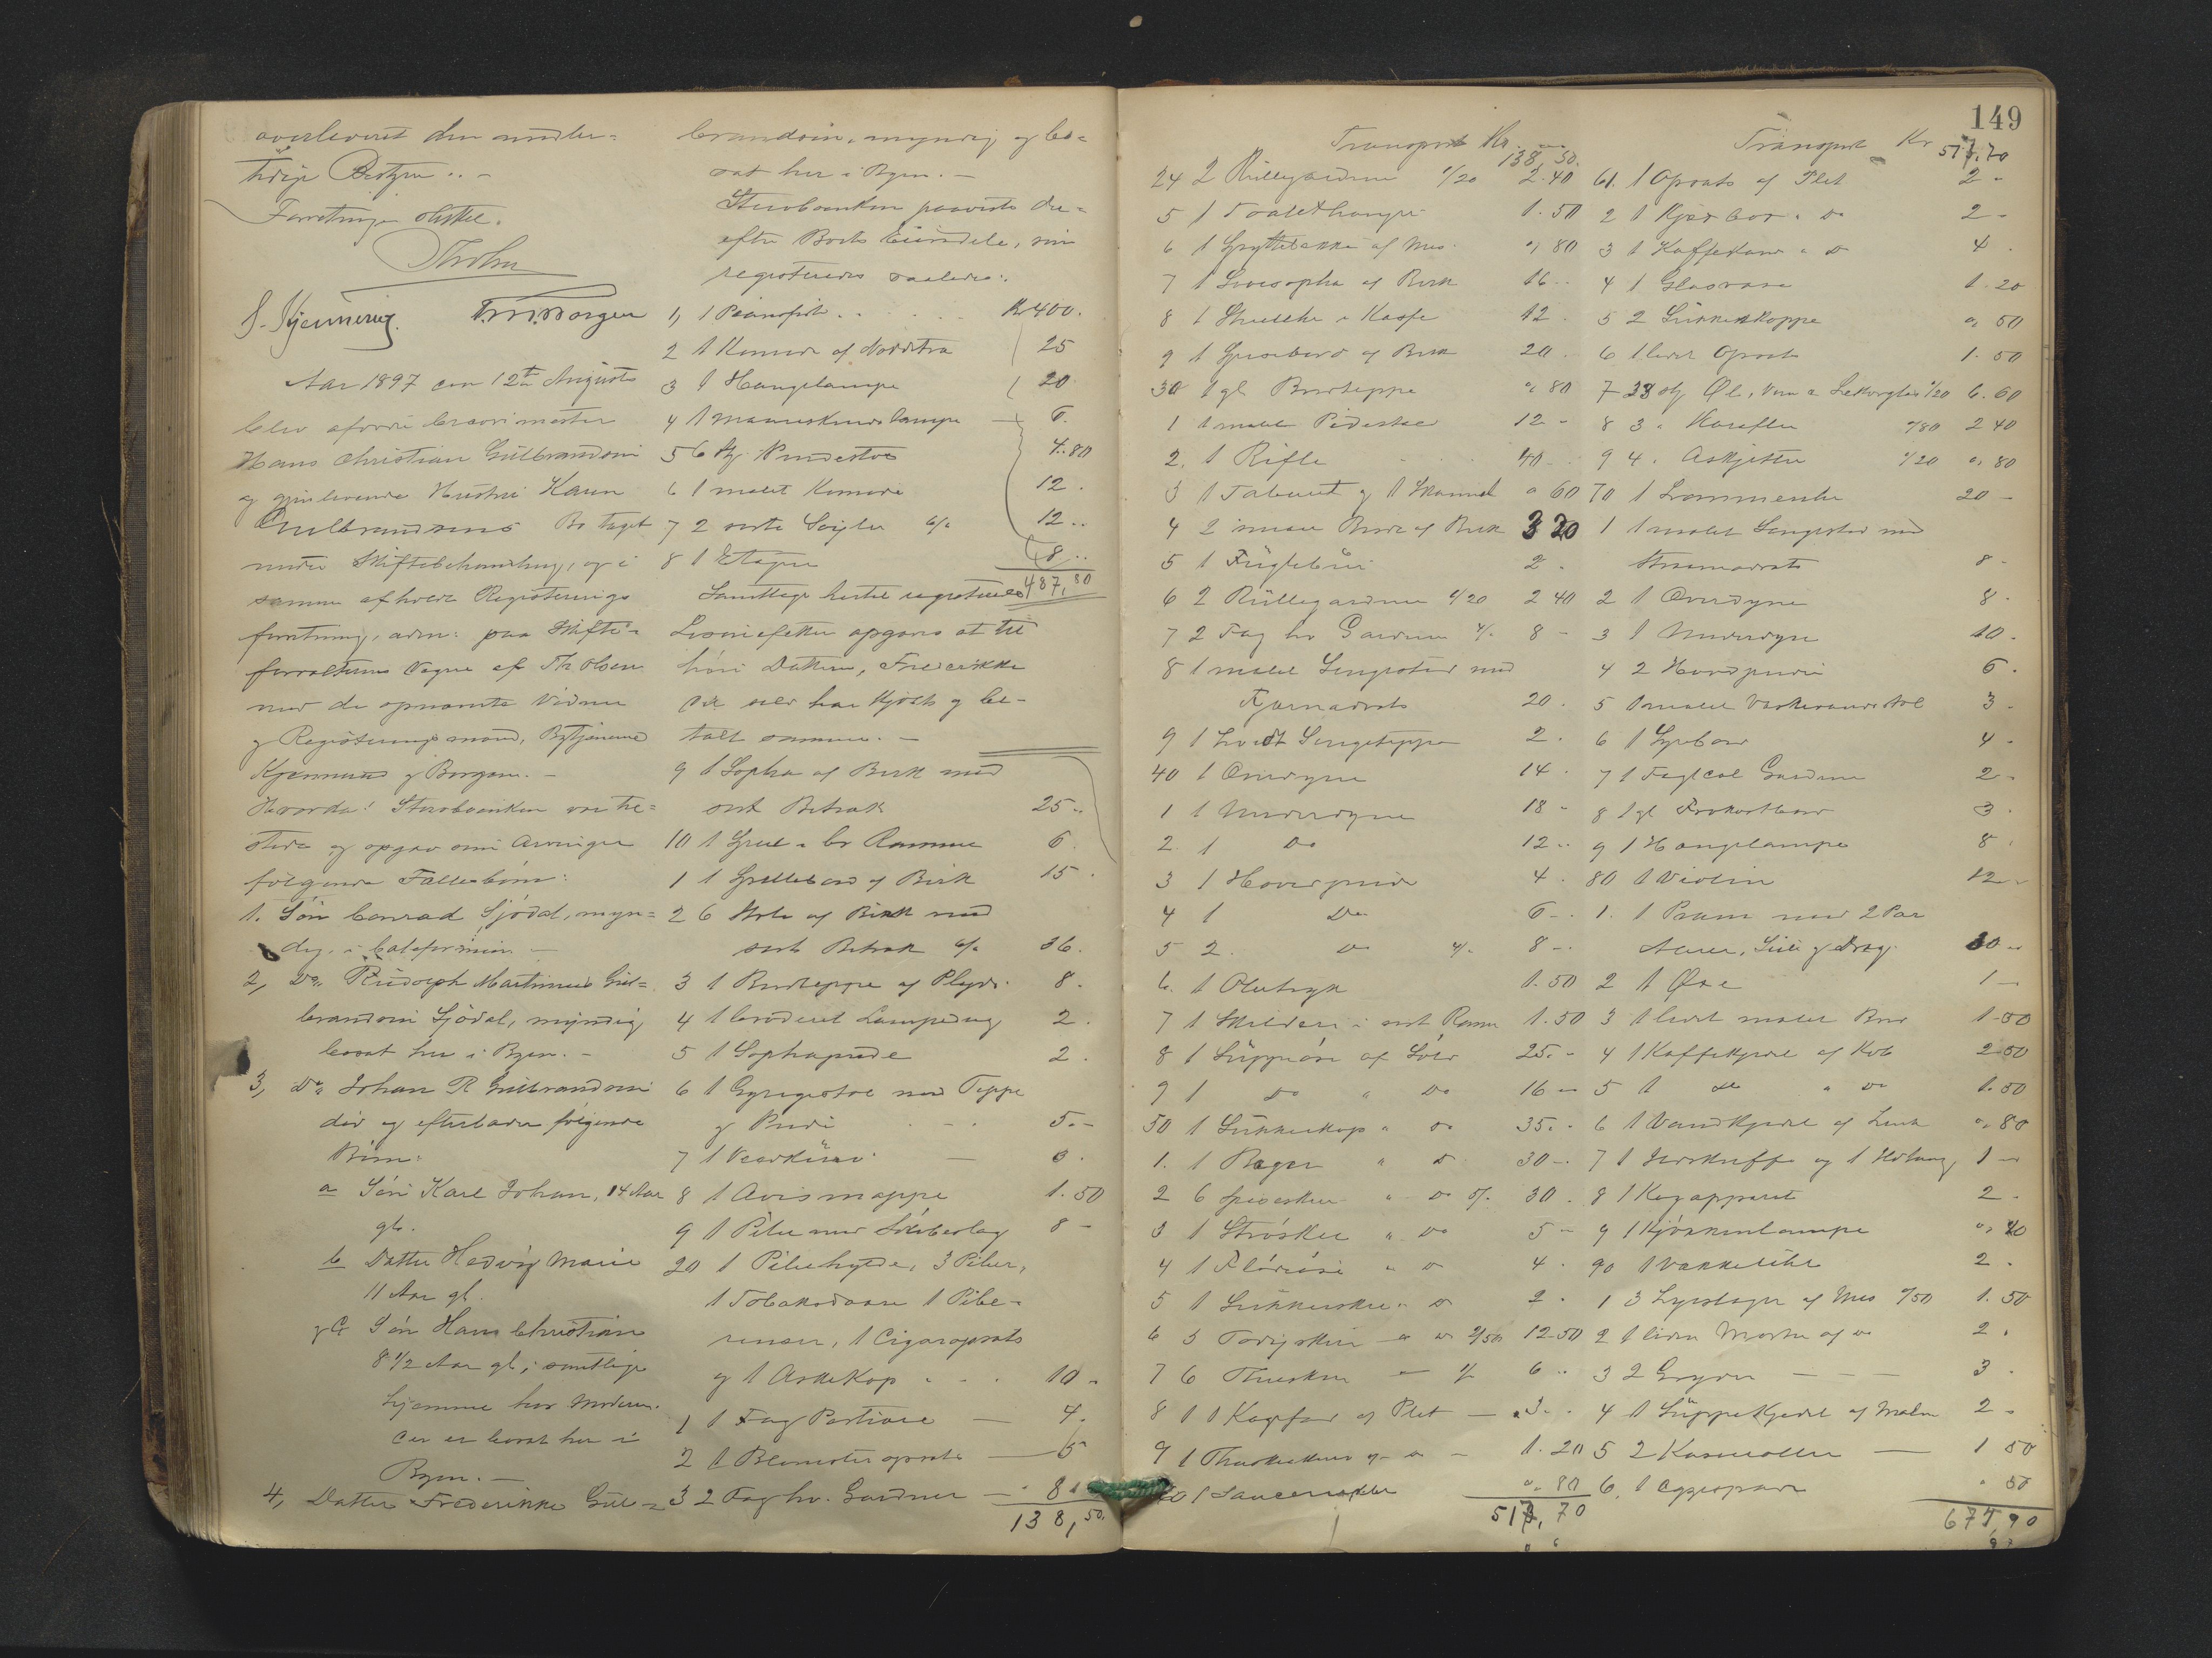 overleveret den midler=
tidige Bestyrer. –
Forretningen sluttet.
Th Olsen
S. Kjennerud. T. M. Borgen
Aar 1897 den 12te Augusts
blev afdøde
Hans Christian Gulbrandsen
og gjenlevende Hustru Karen
Gulbrandsens Bo taget
under Skiftebehandling, og i
samme afholdt Registrerings
forretning, adm: paa Skifte-
forvalterens Vegne af Th Olsen
med de opnævnte Vidner
og Registreringsmænd, Bytjenerne
Kjennerud og Borgen. –
Hvorda! Sterboenken var til=
stede og opgav som Arvinger
følgende Fællesbørn:
1. Søn Conrad Sjødal, myn=
dig, i Californien –
2, Do. Rudolph Martinius Gul=
brandsen Sjødal, myndig
bosat her i Byen. –
3, Do. Johan R Gulbrandsen
død og efterlader følgende
Børn:
a Søn Karl Johan, 14 Aar
gl.
b Datter Hedvig Marie
11 Aar gl.
og c Søn Hans Christian
8 1/2 Aar gl; samtlige
hjemme hos Moderen.
der er bosat her i
Byen. –
4, Datter Frederikke Gul=
brandsen, myndig og bo=
sat her i Byen. –
Sterboenken paaviste der=
efter Boets Eiendele, som
registreredes saaledes:
1, 1 Pianoforte . . . Kr 400.
2 1 Komode af Nøddetræ 25
3 1 Hængelampe 20
4 1 Maaneskinslampe 6.
5 6 St Pindestole 4.80
6 1 malet Komode 12.
7 2 sorte Seigler 6/a 12..
8 1 Etagere 8..
487,80
Samtlige hertil registrerede
Løsøreeffekter opgaves at til
høre Datteren, Frederikke
der selv har kjøbt og be-
talt samme. –
9 1 Sopha af Birk med
sort Betræk 25..
10 1 Speil i br Ramme 6.
1 1 Spillebord af Birk 15.
2 6 Stole af Birk med
sort Betræk 6/a 36.
3 1 Bordteppe af Plyds. 8.
4 1 broderet Lampedug 2.
5 1 Sophapude 2.
6 1 Gyngestol med Teppe
og Pude 5.-
7 1
8 1 Avismappe 1.50
9 1 Pibe med Sølvbeslag 8 –
20 1 Pibehylde, 3 Piber,
1 Tobaksdaase 1 Pibe-
renser, 1 Cigaropsats
og 1 Askekop 10.
1 1 Fag Portiere – 4.
2 1 Blomsteropsats – 5
3 2 Fag hv. Gardiner – 8
138,50.
149
Transport Kr. 138,50.
24 2 Rullegardiner 1/20 2.40
5 1 Toalethængere 1.50
6 1 Spyttebakke af Mes. " 80
7 1 Sovesopha af Birk 16..
8 1 Kasse 12.
9 1 Spisebord af Birk 20.
30 1 gl Bordteppe " 80
1 1 malet Pidestal 12 –
2. 1 Rifle 40 –
3 1 Taburet og 1 Skammel " 60
4 2 Borde af Birk 3 20
5 1 Fuglebur 2.
6 2 Rullegardiner 1/20 2 40
7 2 Fag hv Gardiner 4/. 8 –
8 1 malet Sengested med
Fjærmadrats 20.
9 1 hvidt Sengeteppe 2.
40 1 Overdyne 14.
1 1 Underdyne 18 –
2. 1 Do 12 ..
3 1 Hovedpude 4.
4 1 Do 6 –
5 2. Do 4/. 8 –.
6. 1 Oletryk 1.50
7 1 Skilderi i sort Ramme 1.50
8 1 Suppeøse af Sølv 25.-
9 1 Do " Do 16 –
50 1 Sukkerkop " Do 35.-
1. 1 Bæger " Do 30 –
2 6 Spiseskeer " Do 5/. 30.
3 1 Strøske " Do 5 –
4 1 Fløtøse " Do 4.
5 1 Sukkerske " Do 2.
6 5 Toddyskeer " Do 2/50 12.50
7 6 Theskeer – 1/ 6 ..
8 1 1 Kagefad af Plet – 3..
9 1 af Do – 1.20
60 1 " 80
517,70
Transport Kr 517,70
61. 1 Opsats af Plet 2 –
2 1 " Do 2 –
3 1 Kaffekande " Do 4.
4 1 Glasvase 1.20
5 2 Sukkerkoppe " 50
6 1 liden Opsats 1.50
7 33 St Øl, Vin & Likørglas 1/20 6.60
8 3 " Karafler /80 2 40
9 4. Askjetter 1/20 " 80
70 1 Lommeuhr 20 –
1 1 malet Sengested med
Straamadrats 8 –
2 1 Overdyne 8.
3 1 Underdyne 10.
4 2 Hovedpuder 6.
5 1 malet Vaskevandstol 3 –
6 1 4.
7 1 Fag Gardiner 2 –
8 1 gl Frokostbord 3.
9 1 Hængelampe 8.
80 1 Violin 12 –
1. 1 Pram med 2 Par
Aarer, Seil og Dræg. 30 –
2 1 Øxe 1 –
3 1 lidet malet Bord 1.50
4 1 Kaffekjedel af Kob 2.50
5 1 do " Do 1.50
6 1 Vandkjedel af Zink " 80
7 1 Ildskuffe og 1 Ildtang 1 –
8 1 Kogapparat 2 –
9 1 Kjøkkenlampe
90 1 Vækkeruhr 2.
1 3 Lysestager af Mes /50 1.50
2 1 liden Morter af Do 2.
3 2 Gryder – – – 3.
4 1 Suppekjedel af Malm 2 –
5 2 Kasseroller – 1 50
6. 1 Æggepande " 50
677,90